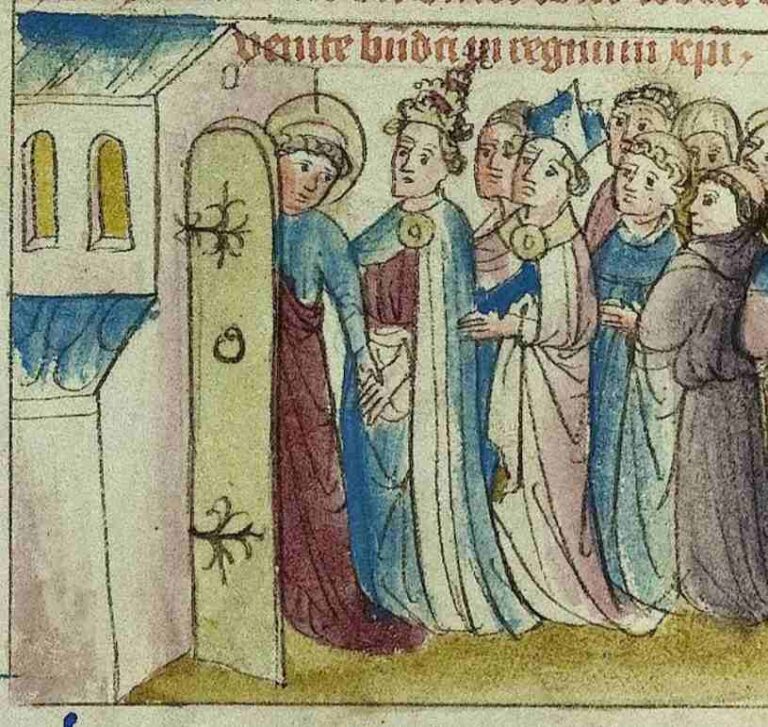 venite bndci in regnum xpi